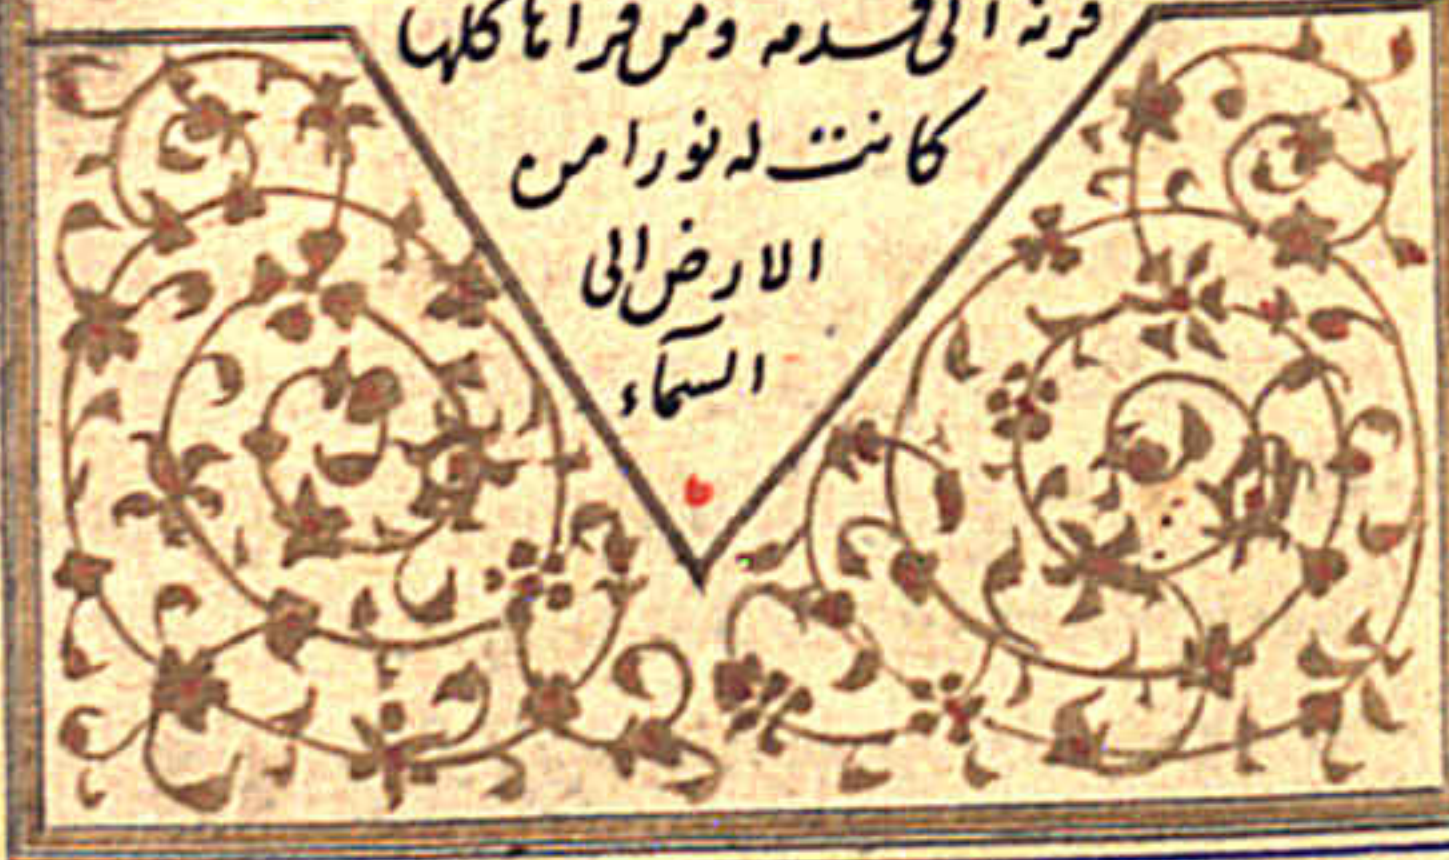 قرنه الى قدمه ومن قراها كلها
كانت له نورا من
الارض الى
السمآء